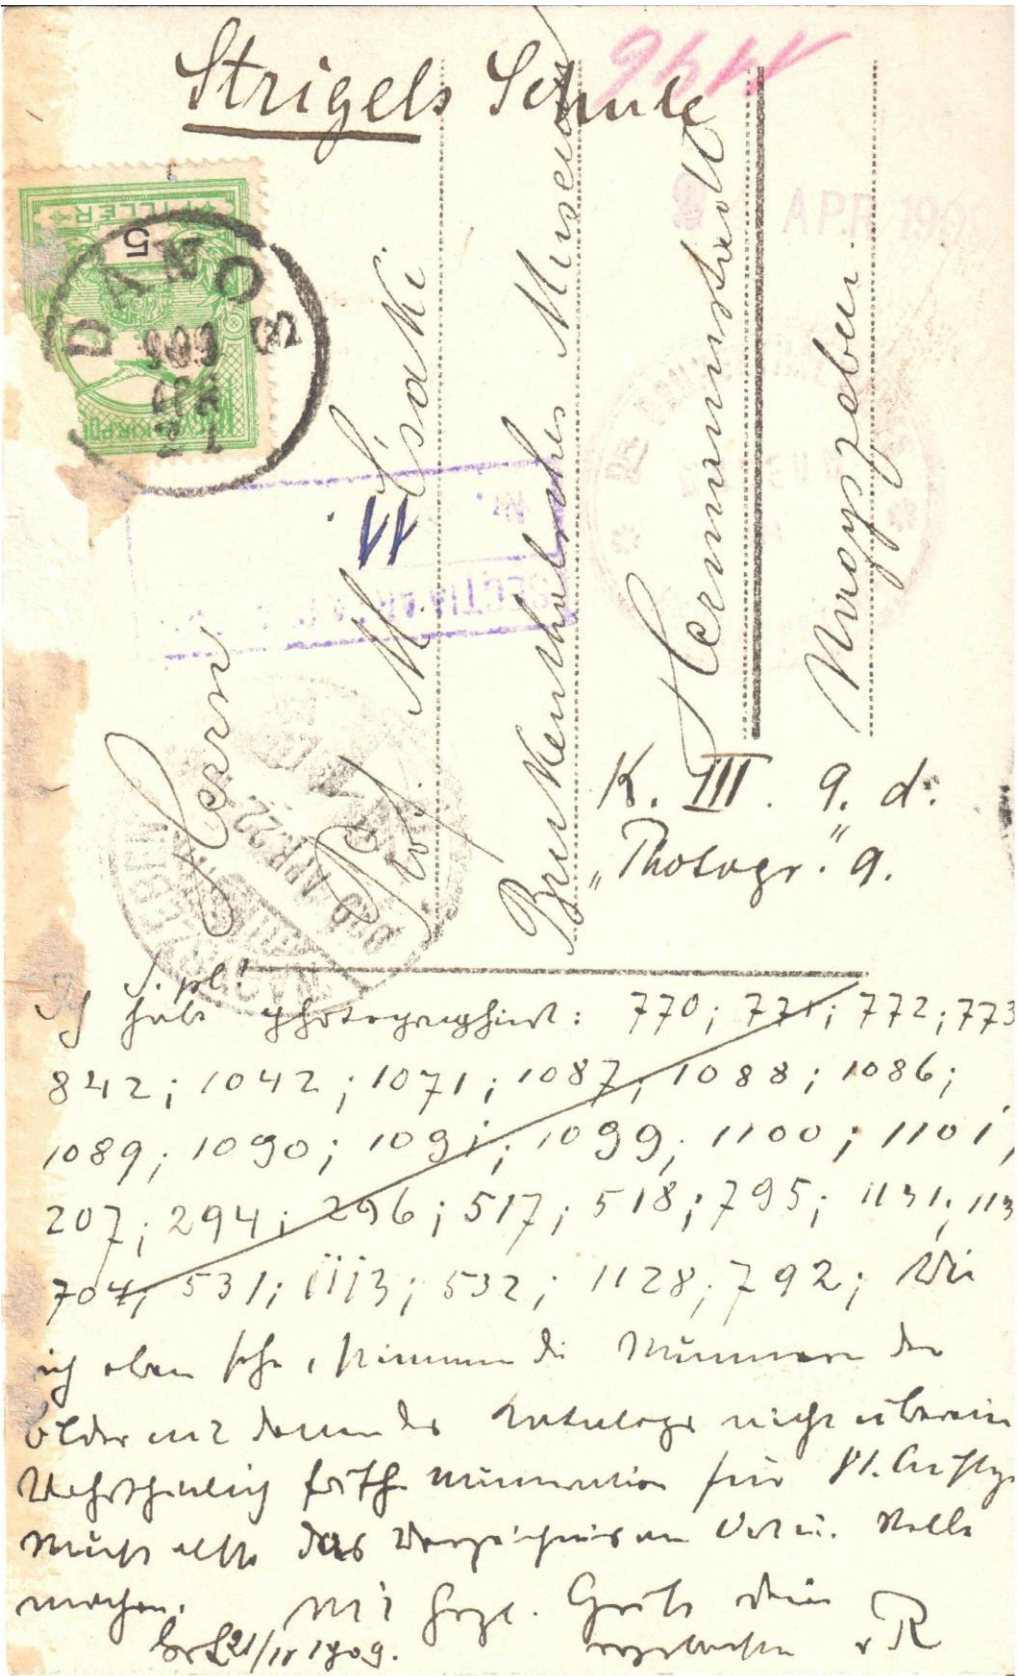 Strigels Schule
1146
5
FILLER
2 APR 1909
Herrn
Prof. M. Csaki
11
Brukenthalsches Museum
Hermannstadt
Nagyszeben
Nr.
SECTIA
909 APR. 22.
K. III. 9. d.
„Photogr." 9.
S. pl!
Ich habe photographiert: 770; 771; 772; 773
842; 1042; 1071; 1087; 1088; 1086;
1089; 1090; 1091; 1099; 1100; 1101,
207; 294; 296; 517; 518; 795; 1131; 113
704; 531; 1113; 532; 1128; 792; Wie
ich eben sehe, stimmen die Nummern der
Bilder mit denen des Katalogs nicht überein
Wahrscheinlich für
das Verzeichnis an Ort u. Stelle
machen. Mit herzl. Gruß Dein
21/IV 1909. ergebenster R